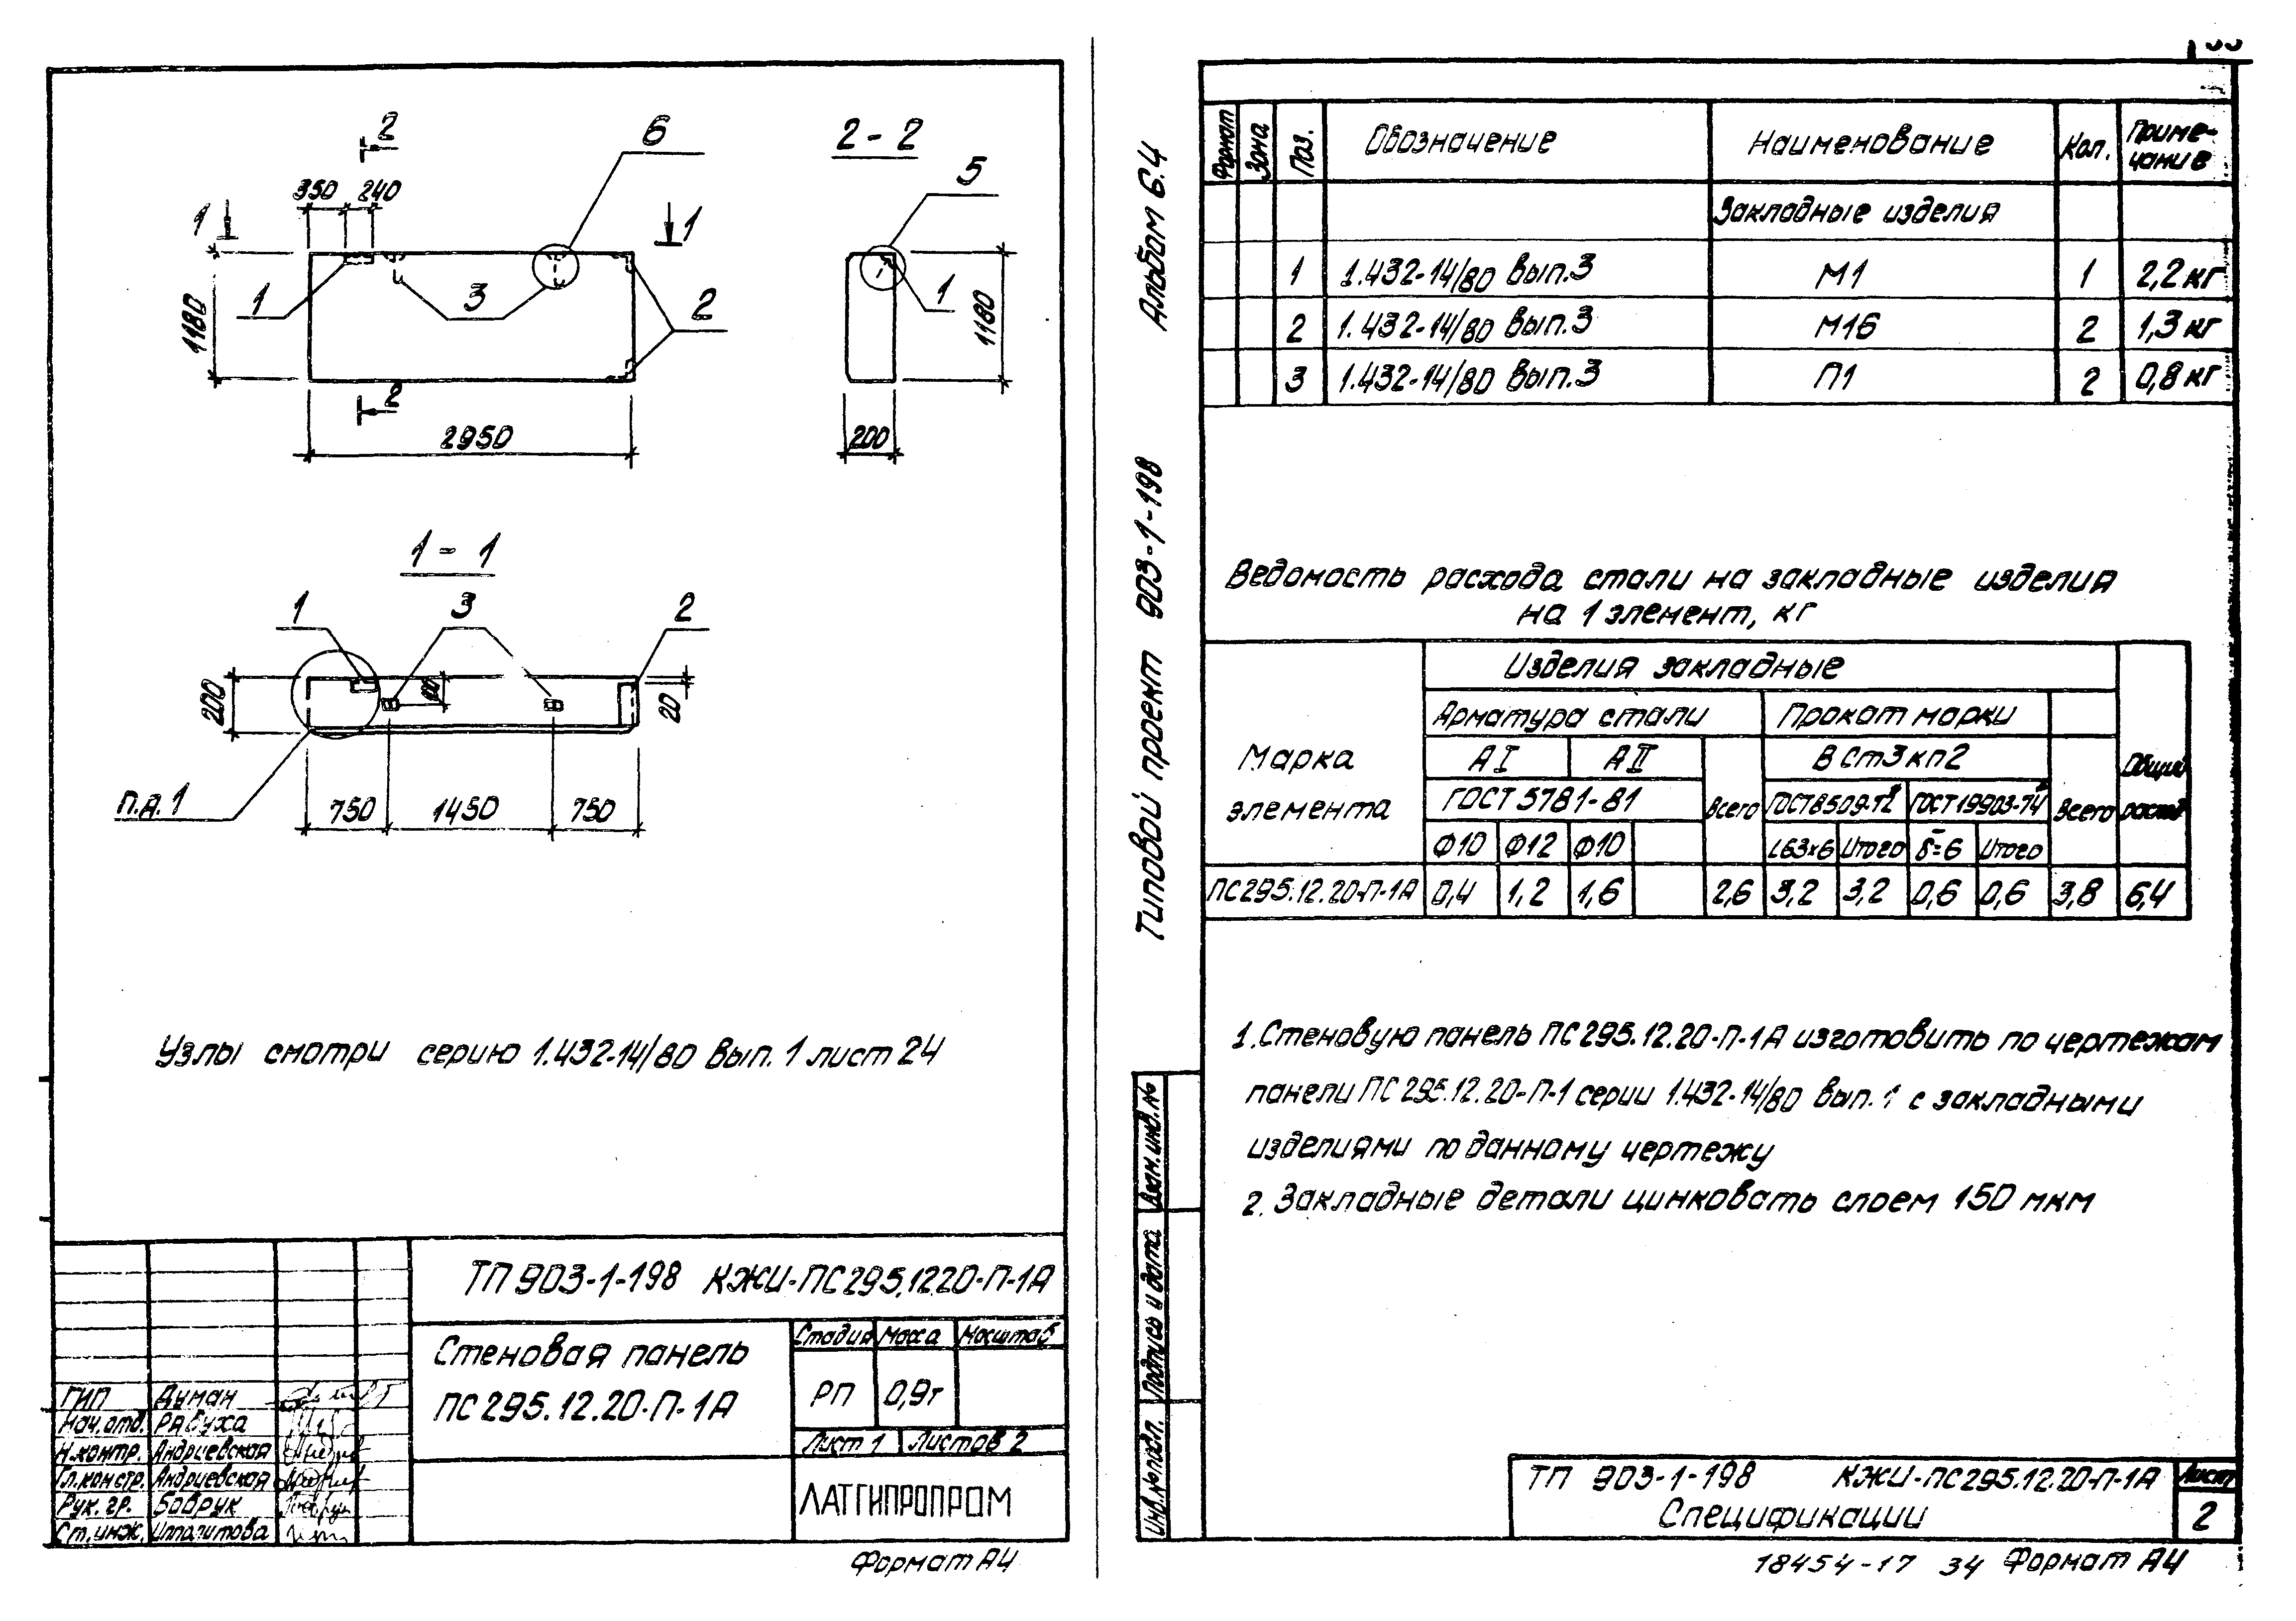 2
6
2-2
5
350 240
1
1
1180
1
3
2
1
1180
2
2950
200
1-1
1
3
2
200
100
20
п.д.1
750
1450
750
Узлы смотри серию 1.432-14/80 вып. 1 лист 24
ТП 903-1-198 КЖИ-ПС295.12.20-П-1А
Стеновая панель
ПС295.12.20-П-1А
Стадия Масса Масштаб
РП 0,9т
Лист 1 Листов 2
ЛАТГИПРОПРОМ
ГИП Думан
Нач.отд. Рябуха
Н.контр. Андриевская
Гл.констр. Андриевская
Рук. гр. Бобрук
Ст.инж. Ипполитова
Формат А4
Альбом 6.4
Типовой проект 903-1-198
Взам.инв.№
Подпись и дата
Инв.№подл.
Формат Зона Поз. Обозначение Наименование Кол. Приме-
чание
Закладные изделия
1 1.432-14/80 вып.3 М1 1 2,2 кг
2 1.432-14/80 вып.3 М16 2 1,3 кг
3 1.432-14/80 вып.3 П1 2 0,8 кг
Ведомость расхода стали на закладные изделия
на 1 элемент, кг
Марка
элемента
Изделия закладные
Общий
расход
Арматура стали Прокат марки
АI АII Всего ВСт3кп2 Всего
ГОСТ 5781-81 ГОСТ8509-72* ГОСТ19903-74*
Ф10 Ф12 Ф10 L63х6 Итого δ=6 Итого
ПС295.12.20-П-1А 0,4 1,2 1,6 2,6 3,2 3,2 0,6 0,6 3,8 6,4
1. Стеновую панель ПС295.12.20-П-1А изготовить по чертежам
панели ПС 295.12.20-П-1 серии 1.432-14/80 вып. 1 с закладными
изделиями по данному чертежу
2. Закладные детали цинковать слоем 150 мкм
ТП 903-1-198 КЖИ-ПС295.12.20-П-1А Лист
Спецификации 2
18454-17 34 Формат А4